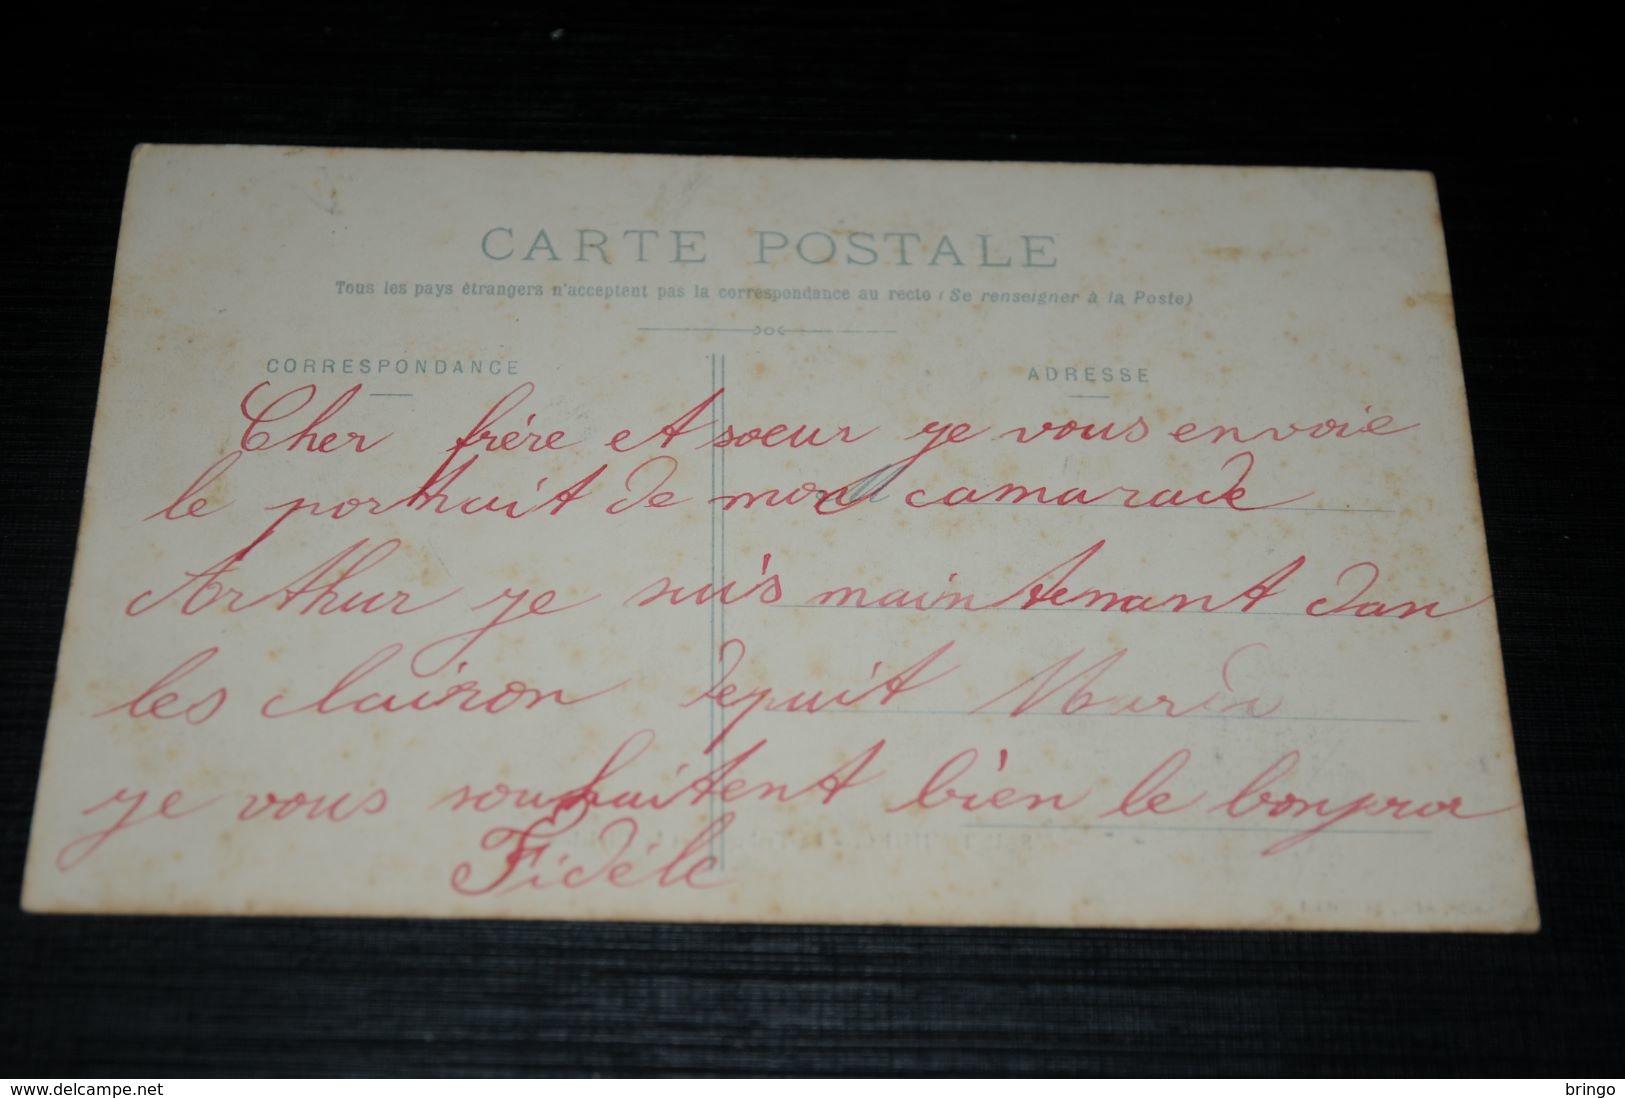 CARTE POSTALE
Tous les pays étrangers n'acceptent pas la correspondance au recto (Se renseigner à la Poste)
CORRESPONDANCE
ADRESSE
Cher frére et soeur je vous envoie
le portrait de mon camarade
Arthur je suis maintenant dan
les clairon depuit Mardi
je vous souhaitent bien le bonjour
Fidéle
www.delcampe.net
bringo